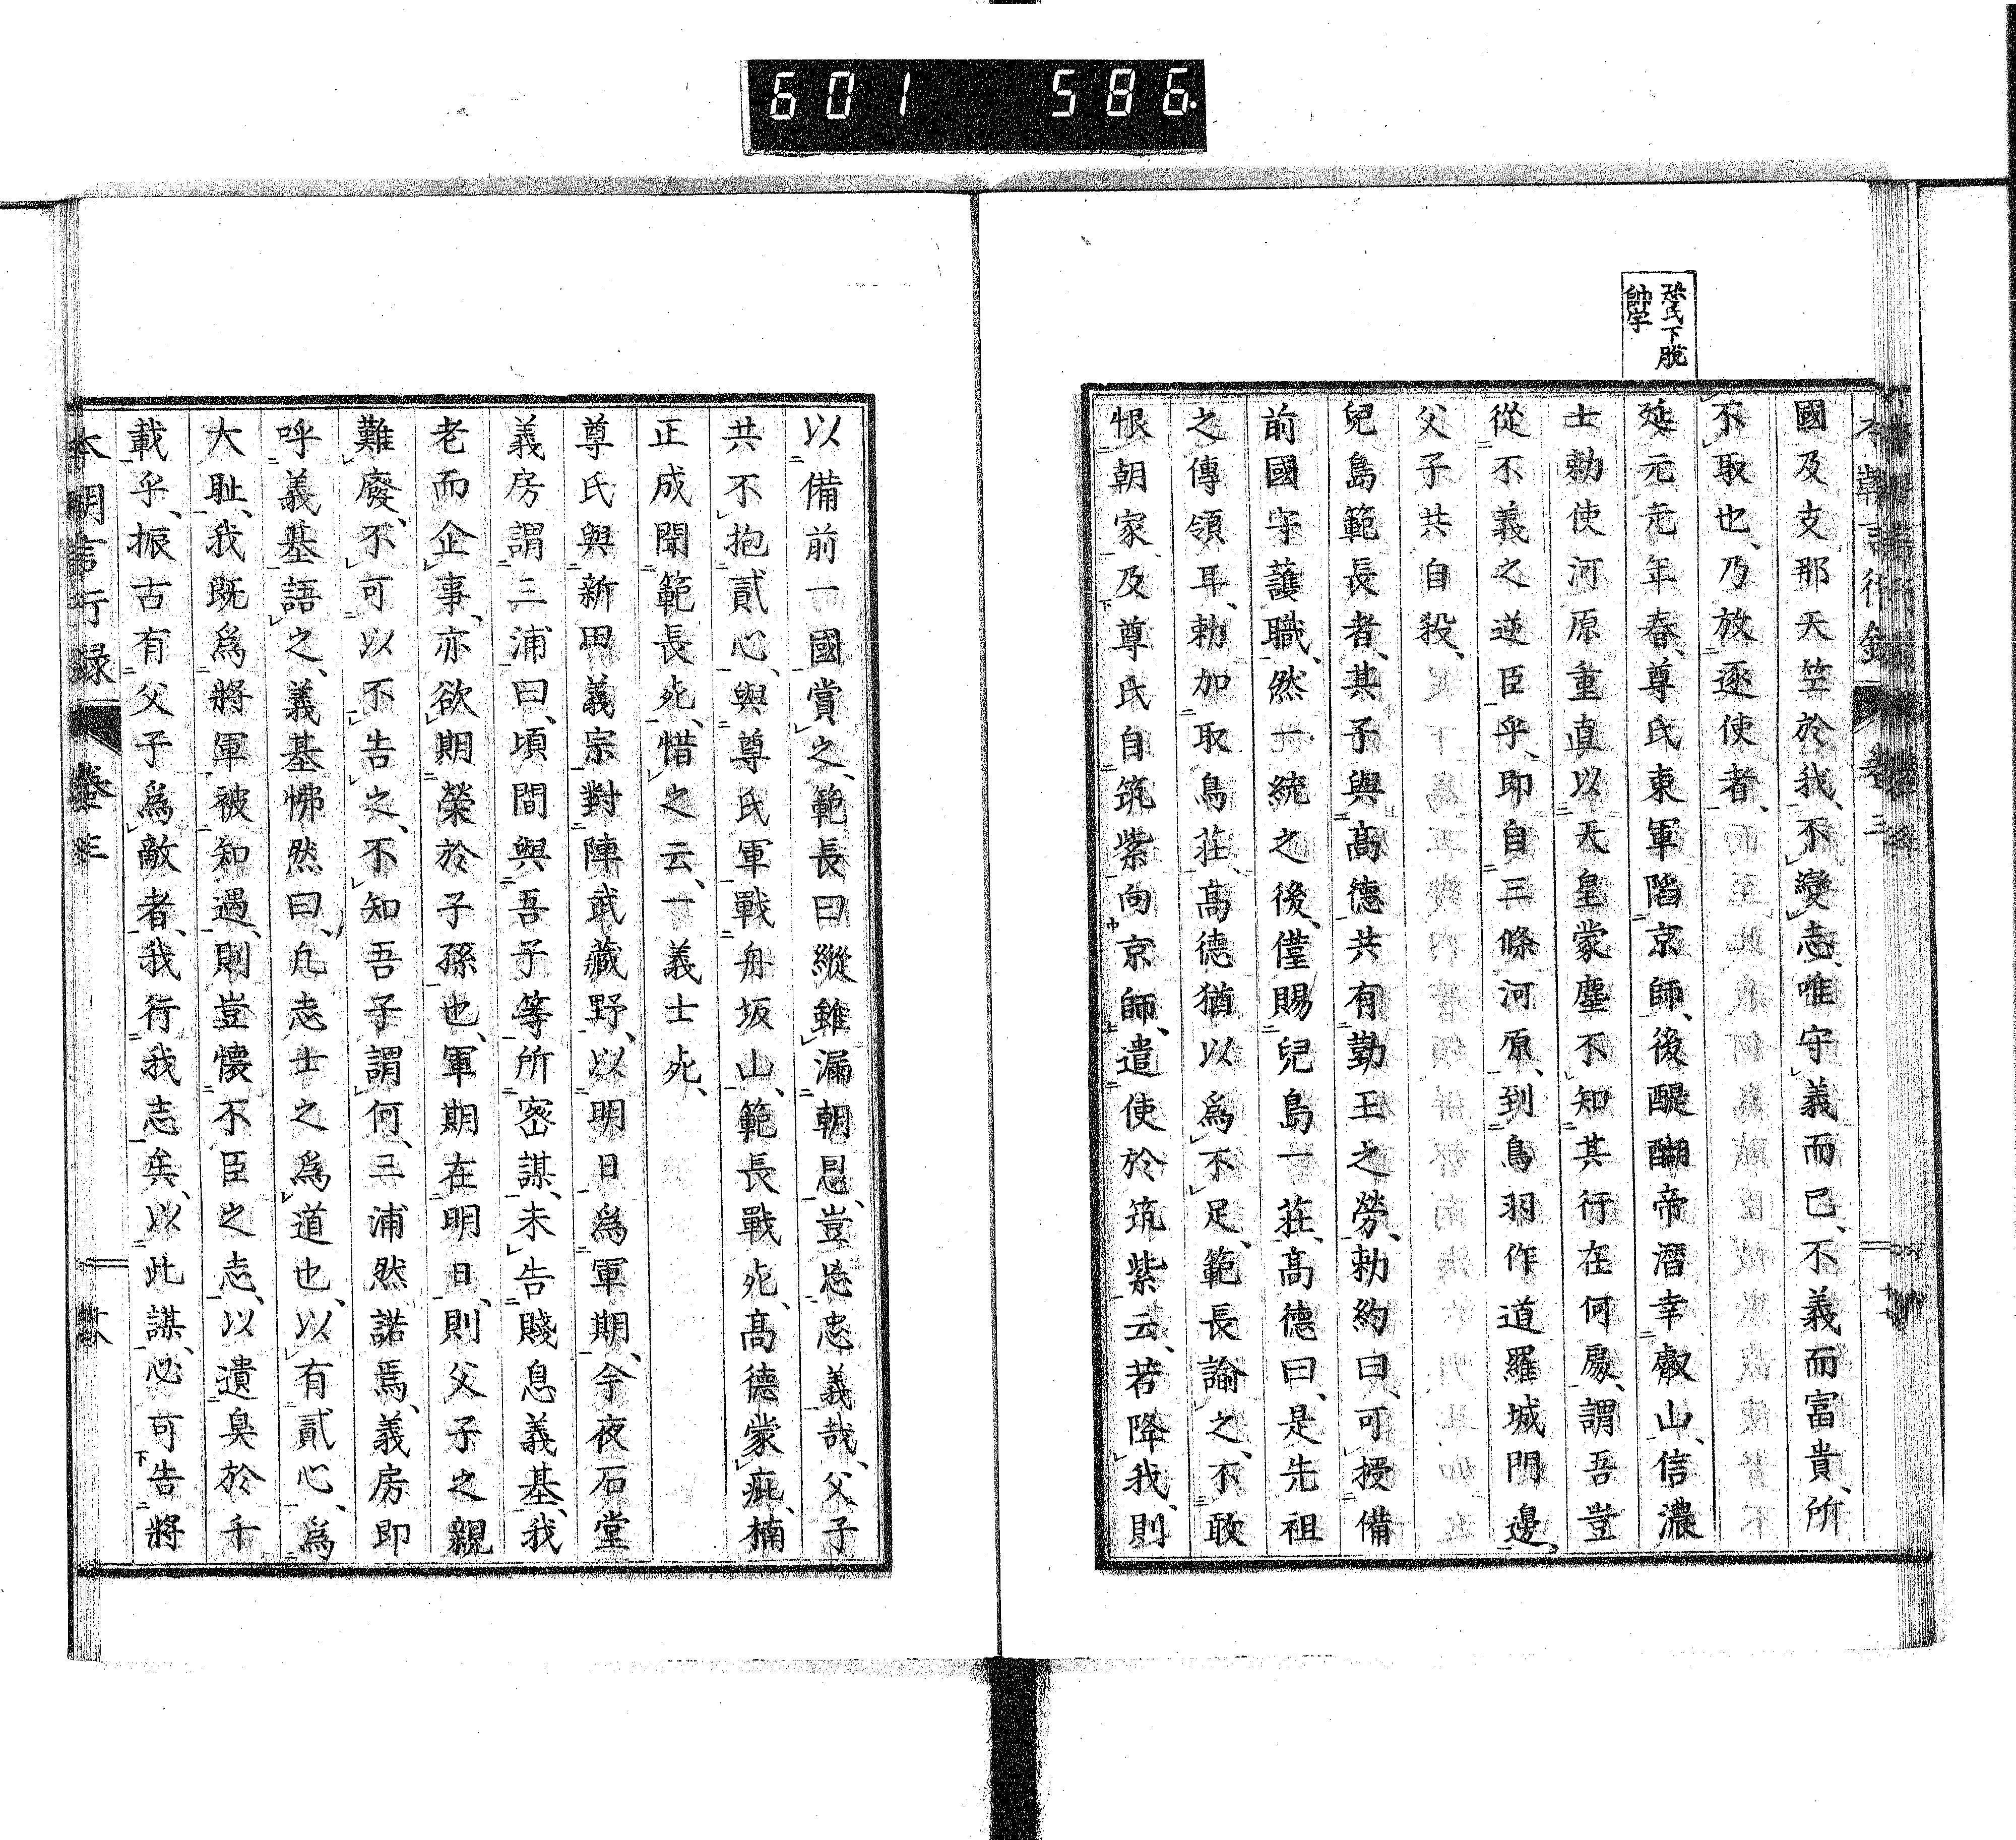 601 586.
尊氏下脫
帥字
國及支那天竺於我、不變志、唯守義而已、不義而富貴、所
不取也、乃放逐使者、
延元元年春、尊氏東軍陷京師、後醍醐帝潛幸叡山、信濃
士勅使河原重直以天皇蒙塵不知其行在何處、謂吾豈
從不義之逆臣乎、即自三條河原、到鳥羽作道羅城門邊。
父子共自殺、
兒島範長者、其子與高德共有勤王之勞、勅約曰、可授備
前國守護職、然一統之後、僅賜兒島一莊、高德曰、是先祖
之傳領耳、勅加取鳥莊、高德猶以爲不足、範長諭之、不敢
恨朝家、及尊氏自筑紫向京師、遣使於筑紫云、若降我、則
以備前一國賞之、範長曰縱雖漏朝恩、豈忘忠義哉、父子
共不抱貳心、與尊氏軍戰舟坂山、範長戰死、高德蒙疵、楠
正成聞範長死、惜之云、一義士死、
尊氏與新田義宗對陣武藏野、以明日爲軍期、今夜石堂
義房謂三浦曰、頃間與吾子等所密謀、未告賤息義基、我
老而企事、亦欲期榮於子孫也、軍期在明日、則父子之親
難廢、不可以不告之、不知吾子謂何、三浦然諾焉、義房即
呼義基語之、義基怫然曰、凡志士之爲道也、以有貳心、爲
大恥、我既爲將軍被知遇、則豈懷不臣之志、以遺臭於千
載乎、振古有父子爲敵者、我行我志矣、以此謀、必可告將
本朝言行録 卷三